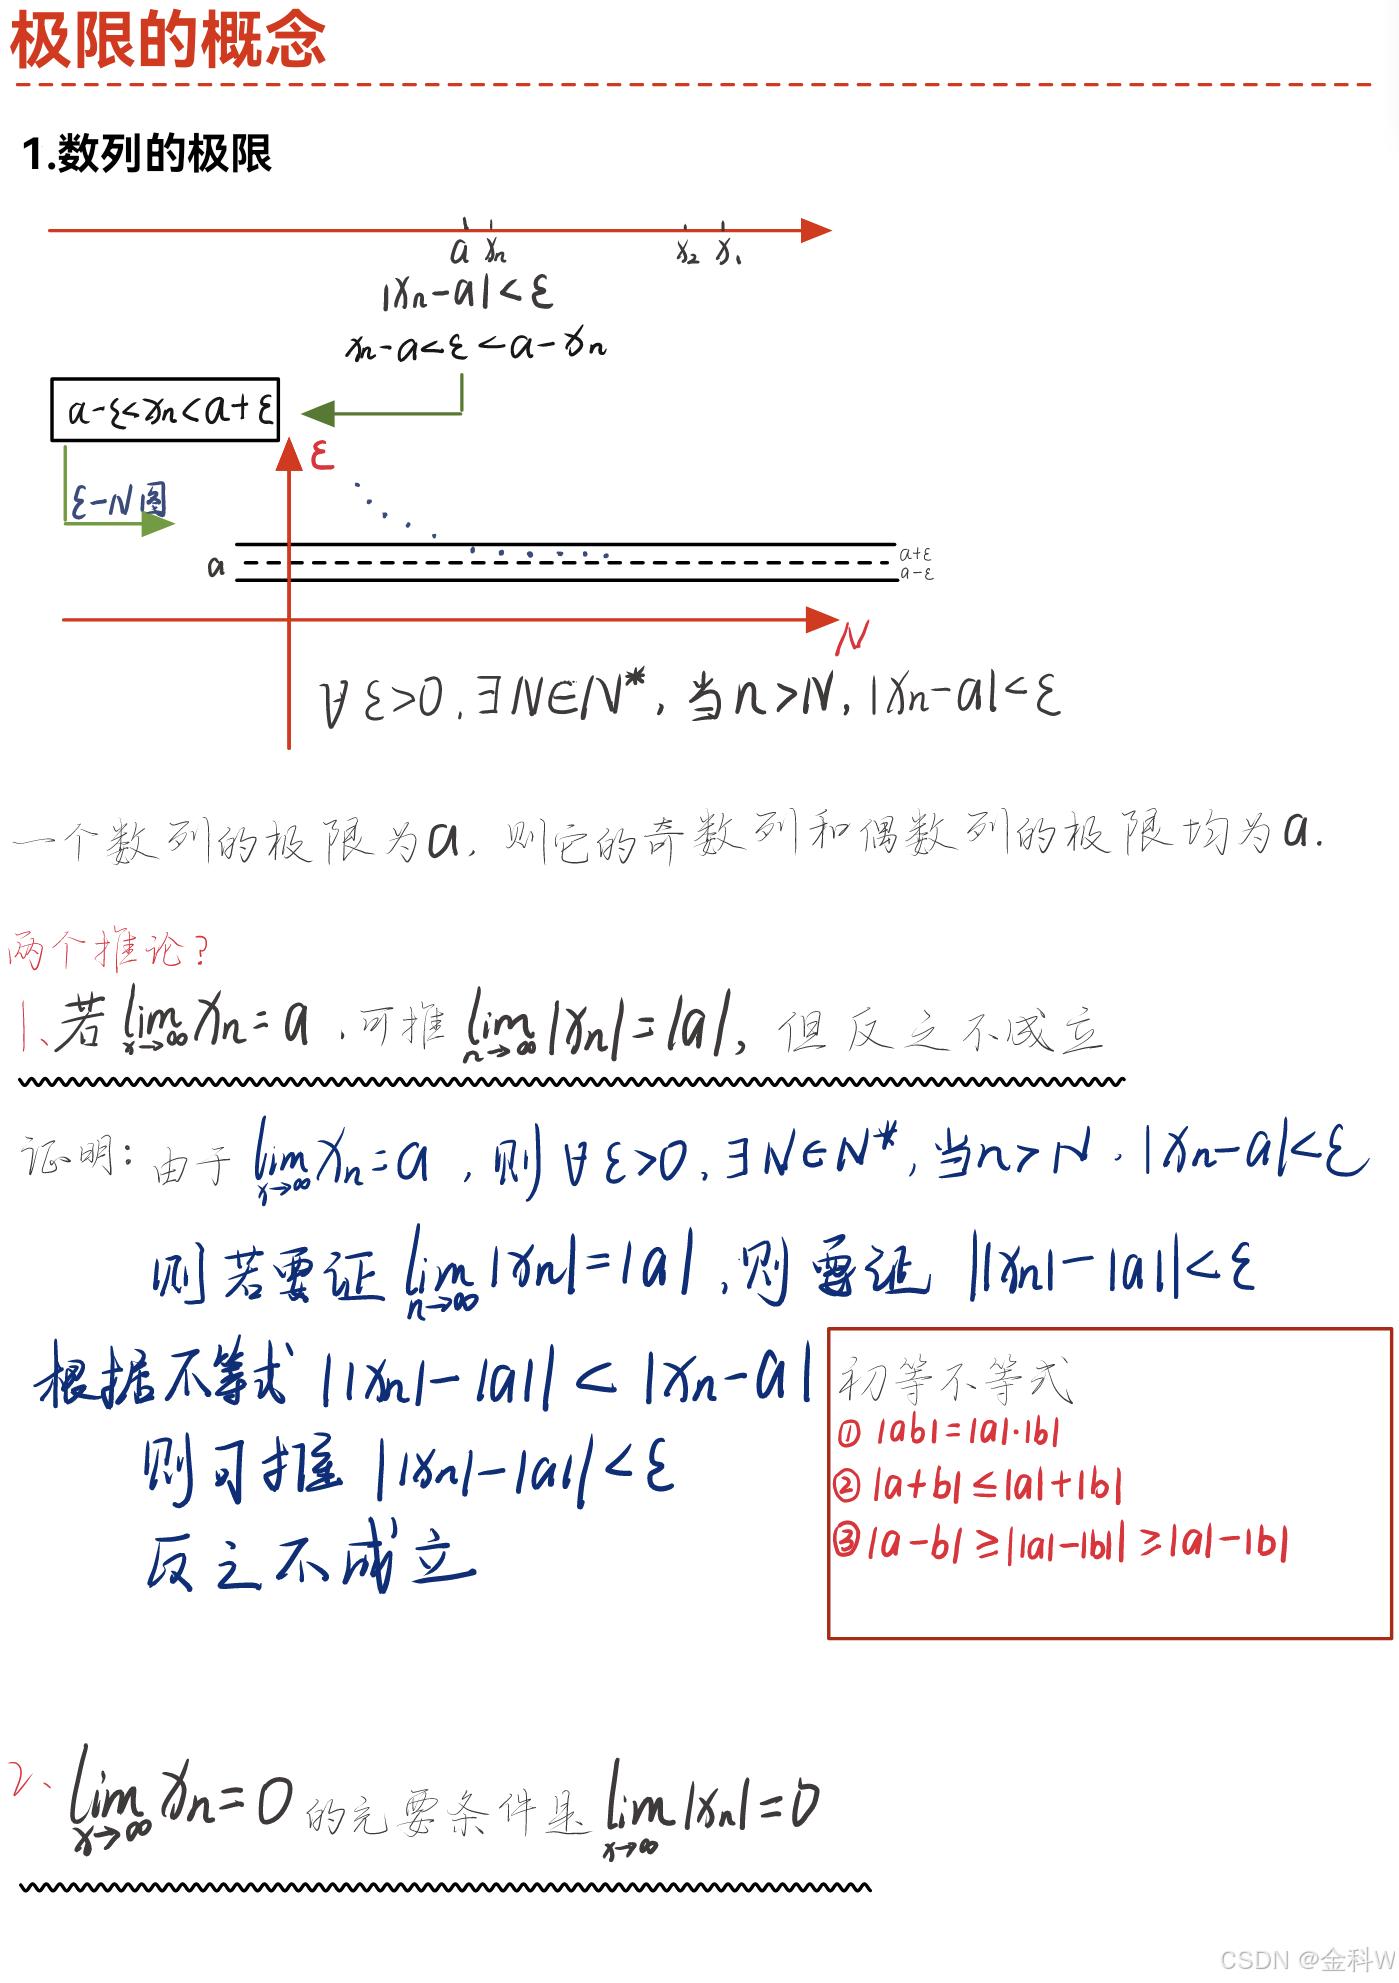 极限的概念
1.数列的极限
a xₙ x₂ x₁
|xₙ-a|<ε
xₙ-a<ε<a-xₙ
a-ε<xₙ<a+ε
ε
ε-N图
a+ε
a
a-ε
N
∀ε>0,∃N∈N*,当n>N,|xₙ-a|<ε
一个数列的极限为a,则它的奇数列和偶数列的极限均为a.
两个推论?
1、若 lim x→∞ xₙ=a,可推 lim n→∞ |xₙ|=|a|,但反之不成立
证明:由于 lim x→∞ xₙ=a,则∀ε>0,∃N∈N*,当n>N,|xₙ-a|<ε
则若要证 lim n→∞ |xₙ|=|a|,则要证 ||xₙ|-|a||<ε
根据不等式 ||xₙ|-|a||<|xₙ-a|
则可推 ||xₙ|-|a||<ε
反之不成立
初等不等式
① |ab|=|a|·|b|
② |a+b|≤|a|+|b|
③ |a-b|≥||a|-|b||≥|a|-|b|
2、lim x→∞ xₙ=0 的充要条件是 lim x→∞ |xₙ|=0
CSDN @金科W